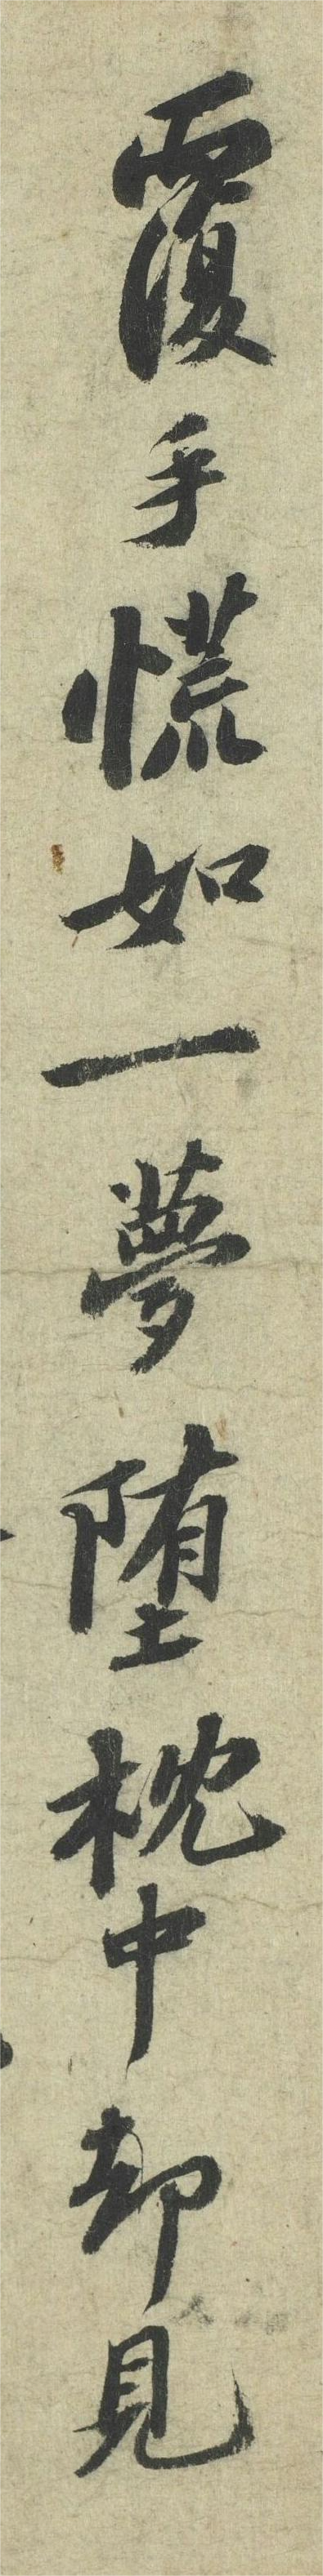 覆手慌如一夢堕枕中却見